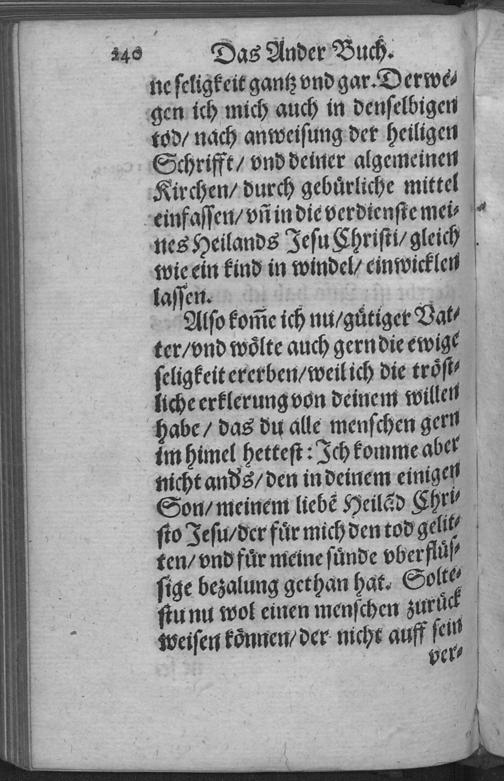 240 Das Ander Buch.
ne seligkeit gantz vnd gar. Derwe-
gen ich mich auch in denselbigen
tod/ nach anweisung der heiligen
Schrifft/ vnd deiner algemeinen
Kirchen/ durch gebürliche mittel
einfassen/ vñ in die verdienste mei-
nes Heilands Jesu Christi/ gleich
wie ein kind in windel/ einwicklen
lassen.
Also kom̃e ich nu/ gütiger Vat-
ter/ vnd wölte auch gern die ewige
seligkeit ererben/ weil ich die tröst-
liche erklerung von deinem willen
habe/ das du alle menschen gern
im himel hettest: Ich komme aber
nicht anđs/ den in deinem einigen
Son/ meinem liebẽ Heilãd Chri-
sto Jesu/ der für mich den tod gelit-
ten/ vnd für meine sünde vberflüs-
sige bezalung gethan hat. Solte-
stu nu wol einen menschen zurück
weisen können/ der nicht auff sein
ver-